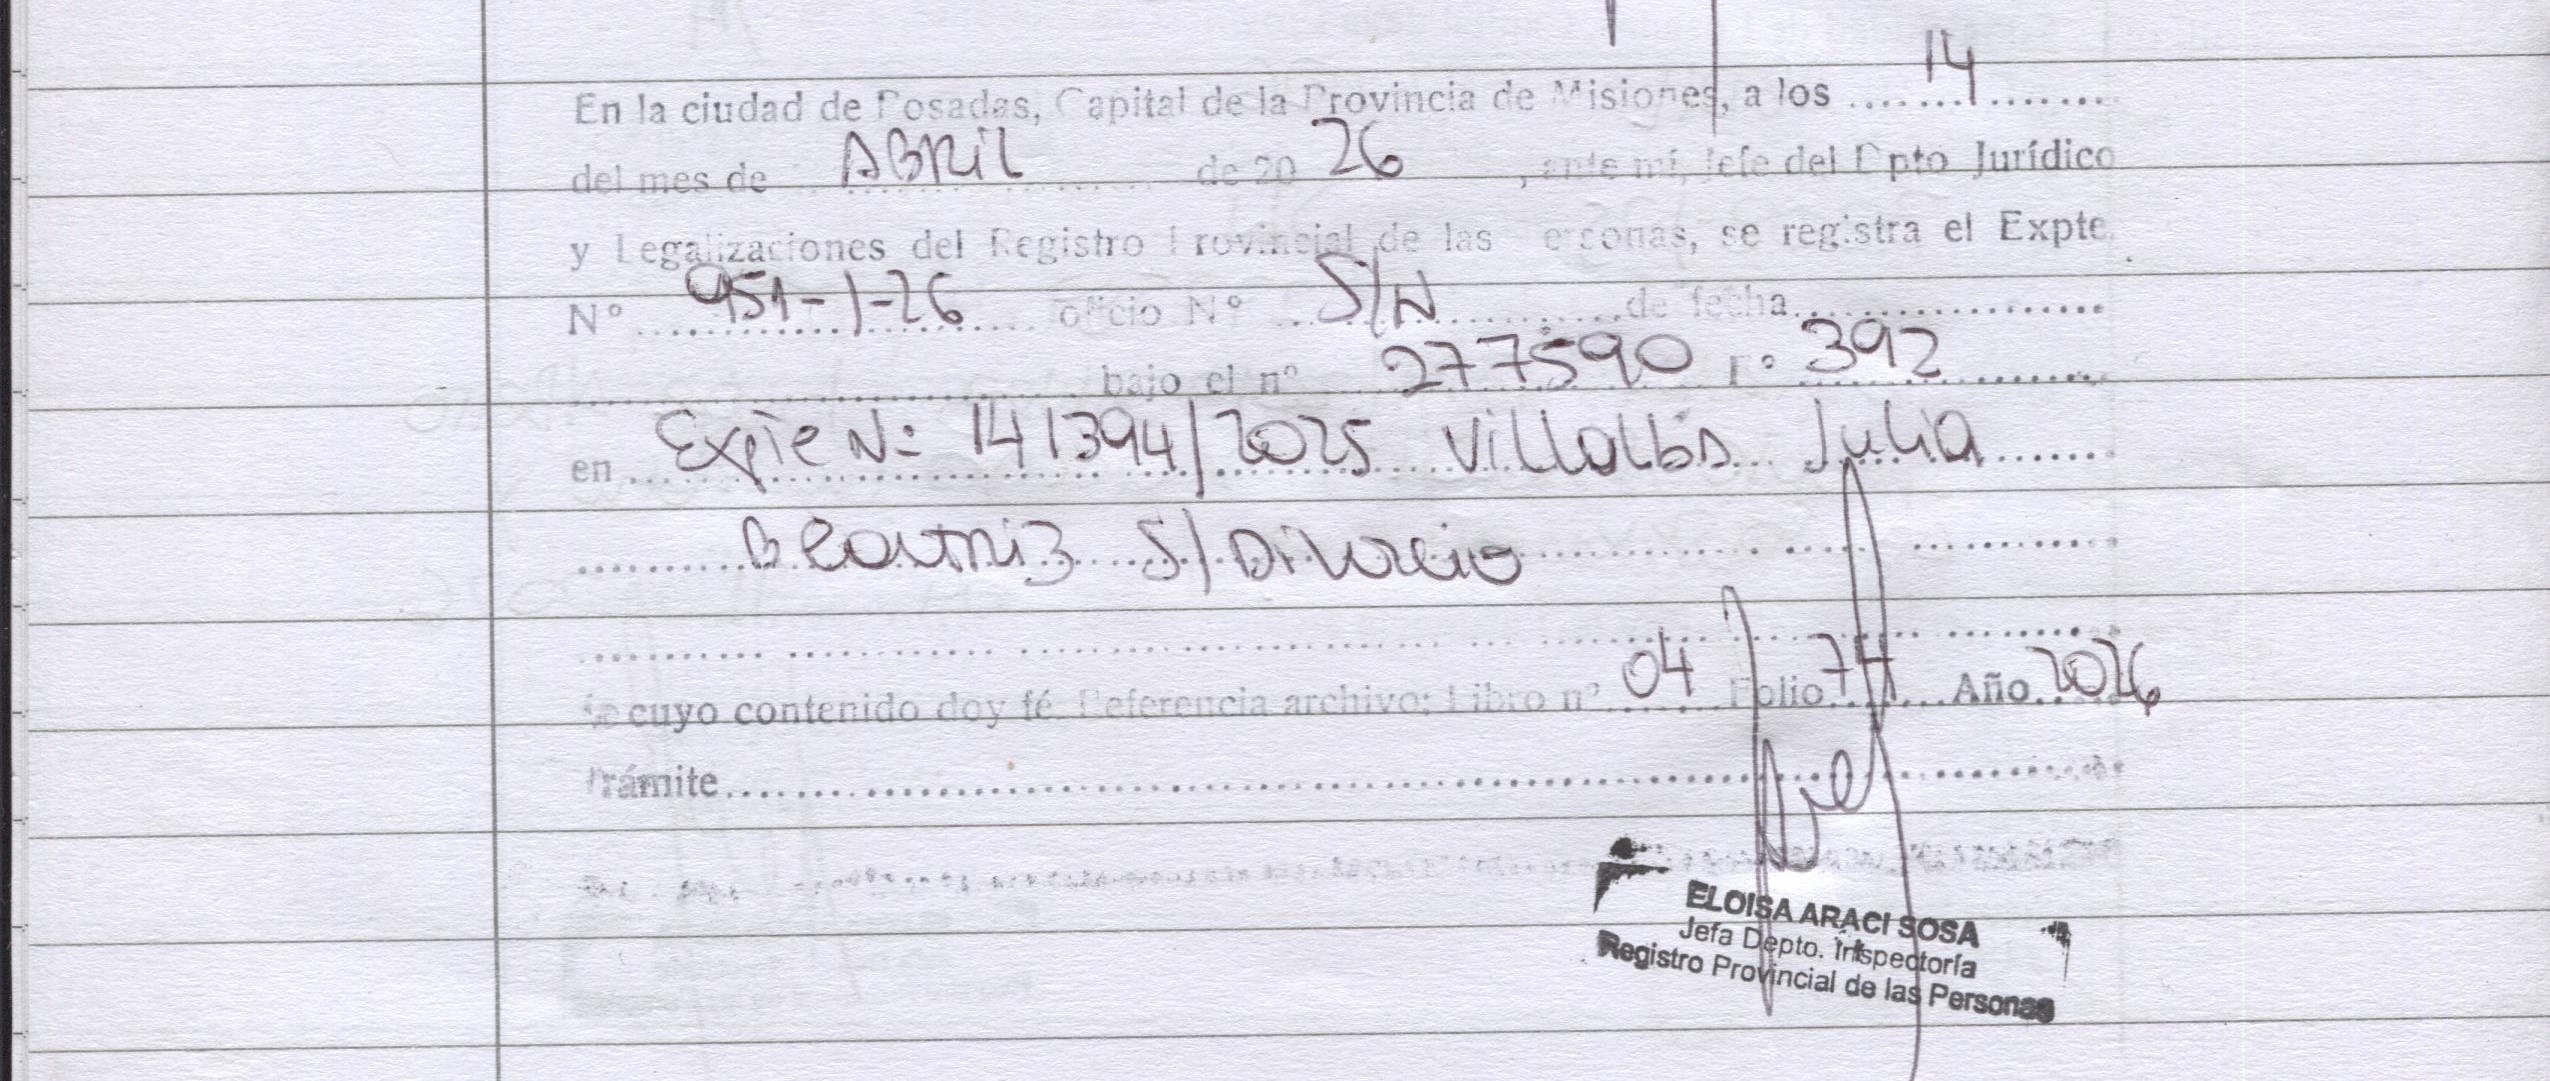 En la ciudad de Posadas, Capital de la Provincia de Misiones, a los ....14....
del mes de ABRIL de 20 26, ante mí, Jefe del Dpto Jurídico
y Legalizaciones del Registro Provincial de las Personas, se registra el Expte.
Nº 951-1-26 oficio Nº S/N de fecha..........
.......... bajo el nº 277590 Fº 392
en Expte Nº 141394/2025 Villalba Julia
Beatriz S/ Divorcio
de cuyo contenido doy fé. Referencia archivo: Libro nº 04 Folio 74 Año 2026
Trámite..........
ELOISA ARACI SOSA
Jefa Depto. Inspectoría
Registro Provincial de las Personas